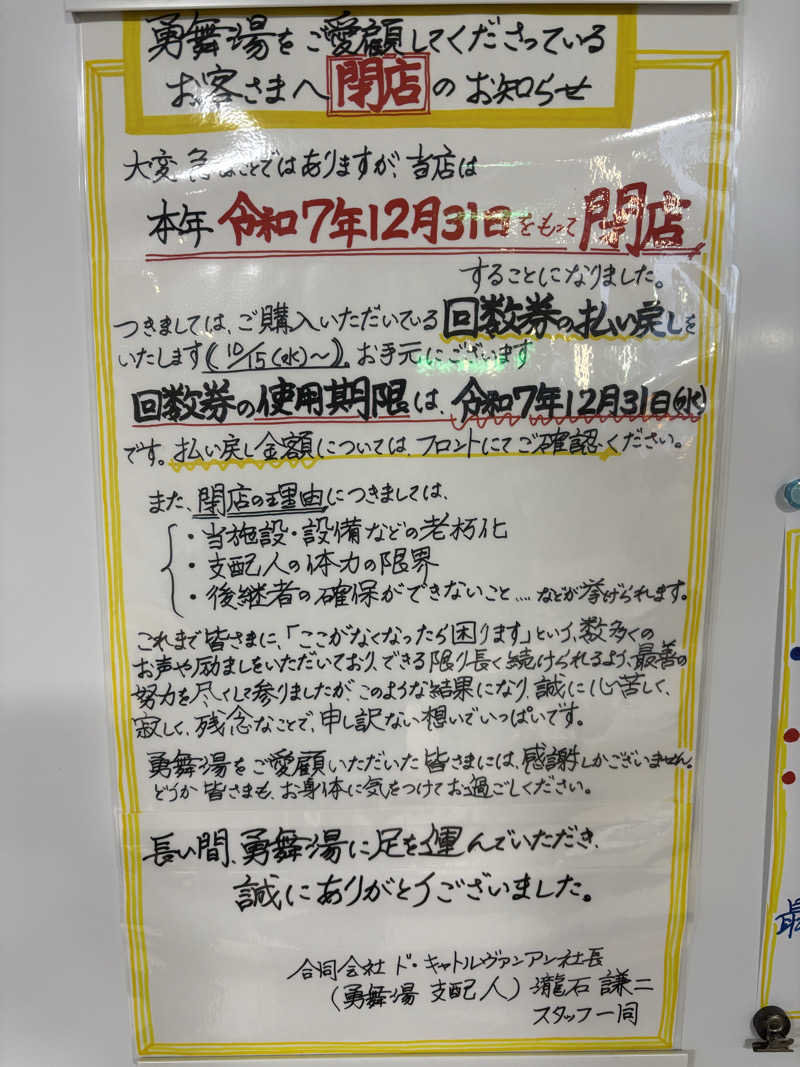 勇舞湯をご愛顧してくださっている
お客さまへ閉店のお知らせ
大変急なことではありますが、当店は
本年令和7年12月31日をもって閉店
することになりました。
つきましては、ご購入いただいている回数券の払い戻しを
いたします(10/15(水)〜)。お手元にございます
回数券の使用期限は、令和7年12月31日(水)
です。払い戻し金額については、フロントにてご確認ください。
また、閉店の理由につきましては、
・当施設・設備などの老朽化
・支配人の体力の限界
・後継者の確保ができないこと....などが挙げられます。
これまで皆さまに、「ここがなくなったら困ります」という、数多くの
お声や励ましをいただいており、できる限り長く続けられるよう、最善の
努力を尽くして参りましたが、このような結果になり、誠に心苦しく、
寂しく、残念なことで、申し訳ない想いでいっぱいです。
勇舞湯をご愛顧いただいた皆さまには、感謝しかございません。
どうか皆さまも、お身体に気をつけてお過ごしください。
長い間、勇舞湯に足を運んでいただき、
誠にありがとうございました。
合同会社 ド・キャトルヴァンアン社長
(勇舞湯 支配人) 瀧石 謙二
スタッフ一同
最